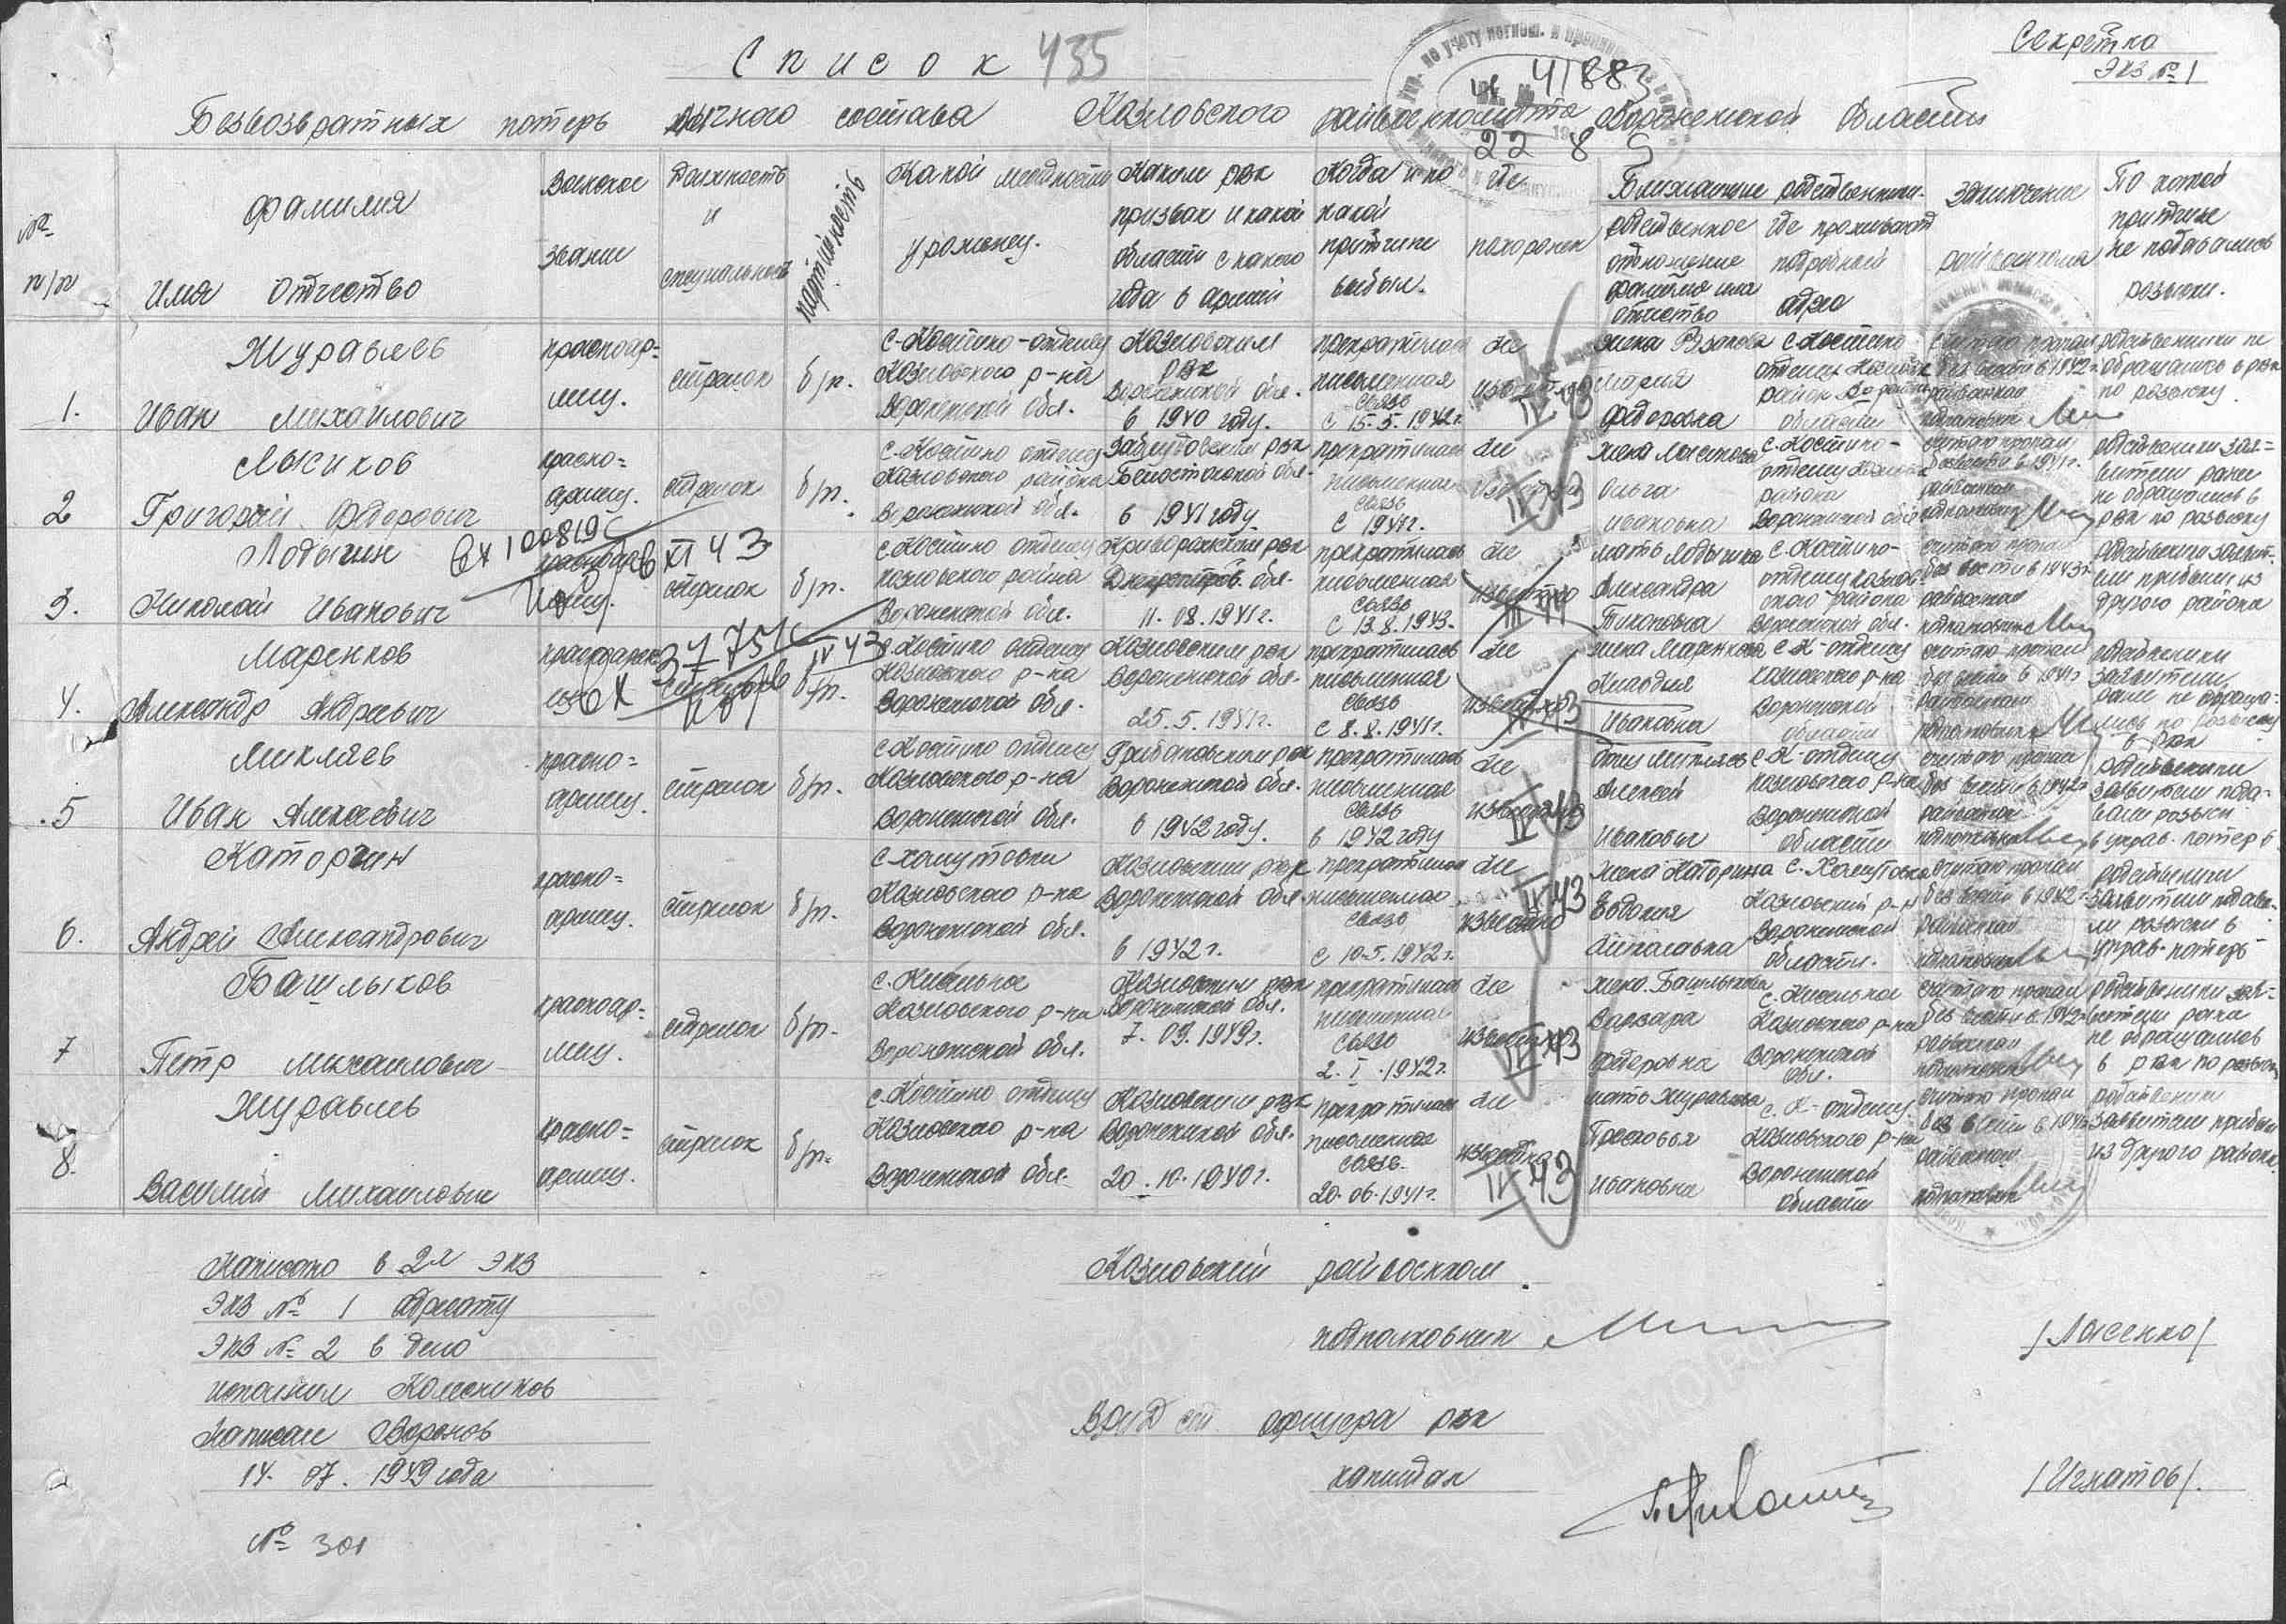 Секретно
Экз № 1
Список 435
41883
22 8
Безвозвратных потерь личного состава Козловского райвоенкомата Воронежской Области
№ п/п
Фамилия Имя Отчество
Воинское звание
Должность и специальность
партийность
Какой местности урожениц.
Каким рвк призван и какой области с какого года в армии
Когда и по какой притчине выбыл.
Где похоронен
Ближайшие родственники.
родственное отношение фамилия имя отчество
где проживают подробный адрес
Заключение райвоенкома
По какой притчине не подавались розыски.
1.
Журавлев Иван Михайлович
красноар=меец.
стрелок
б/п.
с. Костино-отделец Козловского р-на Воронежской обл.
Козловским рвк Воронежской обл. в 1940 году.
прекратилась письменная связь с 15.5.1942г.
не известно
IV 43
жена Мария Федоровна
с. Костино отделец район Воронежской области
считаю пропал без вести в 1942г. райвоенком подполковник
родственники не обращались в рвк по розыску.
2
Лысиков Григорий Федорович
красно=армеец.
стрелок
б/п.
с. Костино отделец Козловского района Воронежской обл.
рвк обл. в 1941 году.
прекратилась письменная связь с 1941г.
не
43
жена Лысикова Ольга Ивановна
с. Костино-отделец района Воронежской обл
считаю пропал без вести в 1941г. райвоенком подполковник
родственники зая=вители ранее не обращались в рвк по розыску
3.
Лодыгин Николай Иванович
вх 100819с
XI 43
стрелок
б/п.
с. Костино отделец Козловского района Воронежской обл.
Криворожским рвк Днепропетров. обл. 11.08.1941г.
прекратилась письменная связь с 13.8.1943.
не известно
мать Лодыгина Александра Тихоновна
с. Костино-отделец Козлов-ского района Воронежской обл.
считаю пропал без вести в 1943г. райвоенком подполковник
родственники заявит-ели прибыли из другого района
4.
Маренков Александр Андреевич
вх 37751с
IV 43
б/п.
с. Костино отделец Козловского р-на Воронежской обл.
Козловским рвк Воронежской обл. 25.5.1941г.
прекратилась письменная связь с 8.8.1941г.
не известно
жена Маренкова Клавдия Ивановна
с. К-отделец Козловского р-на Воронежской области
считаю пропал без вести в 1941г райвоенком подполковник
родственники заявители ранее не обраща-лись по розыску в рвк
5
Микляев Иван Алексеевич
красно=армеец.
стрелок
б/п.
с. Костино отделец Козловского р-на Воронежской обл.
Грибановским рвк Воронежской обл. в 1942 году.
прекратилась письменная связь в 1942 году
не известно
43
отец Микляев Алексей Иванович
с. К-отделец Козловского р-на Воронежской области
считаю пропал без вести в 1942г райвоенком подполковник
родственники заявители пода-вали розыски в управ. потерь
6.
Каторгин Андрей Александрович
красно=армеец.
стрелок
б/п.
с. Хомутовки Козловского р-на Воронежской обл.
Козловским рвк Воронежской обл. в 1942г.
прекратилась письменная связь с 10.5.1942г.
не известно
IV 43
жена Каторгина Евдокия
с. Хомутовка Козловский р-н Воронежской области.
считаю пропал без вести в 1942г райвоенком подполковник
родственники заявители подава-ли розыски в управ. потерь
7
Башлыков Петр Михаилович
красноар=меец.
стрелок
б/п.
с. Кисельное Козловского р-на Воронежской обл.
Козловским рвк Воронежской обл. 7.09.1949г.
прекратилась письменная связь 2.I.1942г.
не известно
43
жена Башлыкова Варвара Федоровна
с. Кисельное Козловского р-на Воронежской обл.
считаю пропал без вести в 1942г райвоенком подполковник
родственники зая=вители ранее не обращались в рвк по розыску
8.
Журавлев Василий Михаилович
красно=армеец.
стрелок
б/п.
с. Костино отделец Козловского р-на Воронежской обл.
Козловским рвк Воронежской обл. 20.10.1940г.
прекратилась письменная связь. 20.06.1941г.
не известно
IV 43
мать Журавлева Прасковья Ивановна
с. К-отделец. Козловского р-на Воронежской области
считаю пропал без вести в 1941г райвоенком подполковник
родственники заявители прибыли из другого района.
Написано в 2х экз
Экз № 1 адресату
Экз № 2 в дело
исполнил Колесников
Написал Воронов
14.07.1949 года
№ 301
Козловский райвоенком.
подполковник /Лысенко/
ВРИД ст. офицера рвк
капитан /Игнатов/.